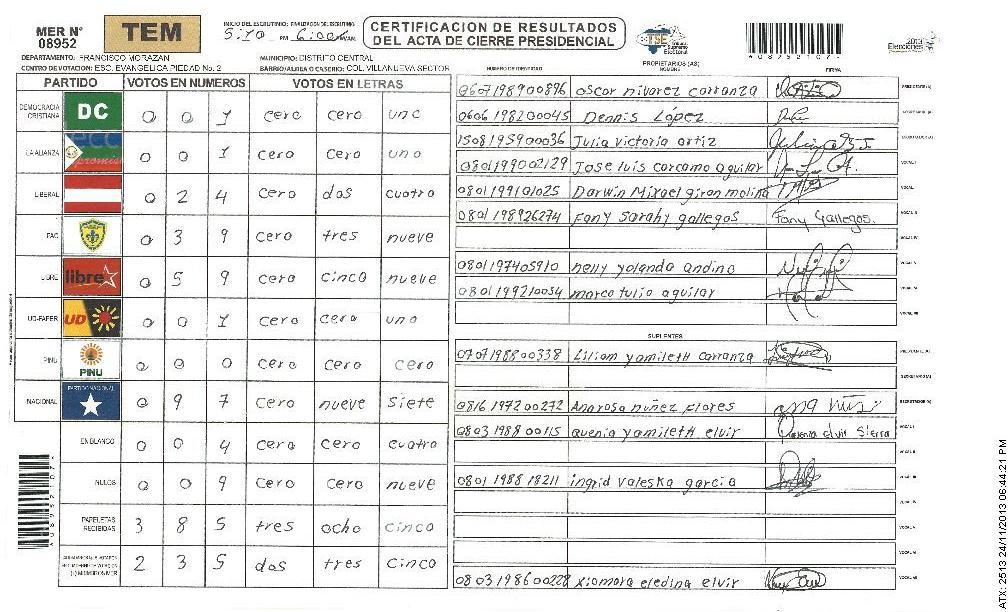 MER N° 08952
TEM
INICIO DEL ESCRUTINIO: FINALIZACION DEL ESCRUTINIO:
5:10 PM 6:00
CERTIFICACION DE RESULTADOS
DEL ACTA DE CIERRE PRESIDENCIAL
TSE
2013
Elecciones
A08952107
DEPARTAMENTO: FRANCISCO MORAZAN
MUNICIPIO: DISTRITO CENTRAL
CENTRO DE VOTACION: ESC. EVANGELICA PIEDAD No. 2
BARRIO/ALDEA O CASERIO: COL VILLANUEVA SECTOR
PROPIETARIOS (AS)
NUMERO DE IDENTIDAD NOMBRE FIRMA
PARTIDO VOTOS EN NUMEROS VOTOS EN LETRAS
DEMOCRACIA CRISTIANA DC 0 0 1 cero cero uno
LA ALIANZA 0 0 1 cero cero uno
LIBERAL 0 2 4 cero dos cuatro
PAC 0 3 9 cero tres nueve
LIBRE libre 0 5 9 cero cinco nueve
UD-FAPER UD 0 0 1 cero cero uno
PINU PINU 0 0 0 cero cero cero
NACIONAL PARTIDO NACIONAL 0 9 7 cero nueve siete
EN BLANCO 0 0 4 cero cero cuatro
NULOS 0 0 9 cero cero nueve
PAPELETAS RECIBIDAS 3 8 5 tres ocho cinco
2 3 5 dos tres cinco
0607198900896 oscar nivarez carranza
0606198200045 Dennis López
1508195900036 Julia victoria ortiz
0801199002129 Jose luis carcamo aguilar
0801199101025 Darwin Mixael giron molina
0801198926274 Fany Sarahy gallegos Fany Gallegos.
0801197405910 nelly yolanda andino
0801199210054 marco tulio aguilar
SUPLENTES
0707198800338 Liliam yamileth carranza
0816197200272 Anarosa nuñez flores
0803198800115 quenia yamileth elvir
0801198818211 ingrid valeska garcia
0803198600228 xiomara eledina elvir
A08952107
ATX: 2513 24/11/2013 06:44:21 PM